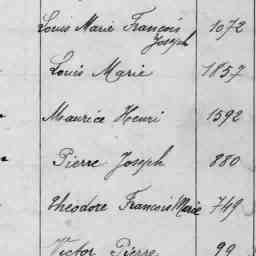 Louis Marie François Joseph 1072
Louis Marie 1857
Maurice Henri 1592
Pierre Joseph 880
Theodore Francois Marie 749
Victor Pierre 99